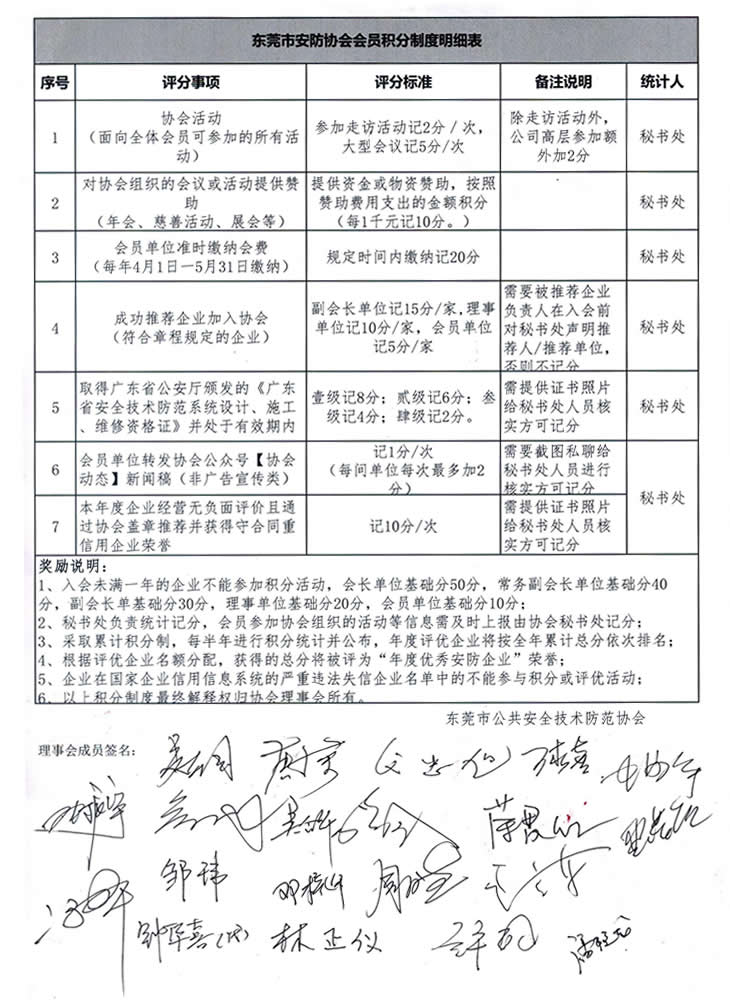 东莞市安防协会会员积分制度明细表
序号 评分事项 评分标准 备注说明 统计人
1
协会活动
（面向全体会员可参加的所有活
动）
参加走访活动记2分／次，
大型会议记5分/次
除走访活动外，
公司高层参加额
外加2分
秘书处
2
对协会组织的会议或活动提供赞
助
（年会、慈善活动、展会等）
提供资金或物资赞助，按照
赞助费用支出的金额积分
（每1千元记10分。）
秘书处
3
会员单位准时缴纳会费
（每年4月1日—5月31日缴纳）
规定时间内缴纳记20分
秘书处
4
成功推荐企业加入协会
（符合章程规定的企业）
副会长单位记15分/家,理事
单位记10分/家，会员单位
记5分/家
需要被推荐企业
负责人在入会前
对秘书处声明推
荐人/推荐单位,
否则不记分
秘书处
5
取得广东省公安厅颁发的《广东
省安全技术防范系统设计、施工
、维修资格证》并处于有效期内
壹级记8分；贰级记6分；叁
级记4分；肆级记2分。
需提供证书照片
给秘书处人员核
实方可记分
秘书处
6
会员单位转发协会公众号【协会
动态】新闻稿（非广告宣传类）
记1分/次
（每问单位每次最多加2
分）
需要截图私聊给
秘书处人员进行
核实方可记分
秘书处
7
本年度企业经营无负面评价且通
过协会盖章推荐并获得守合同重
信用企业荣誉
记10分/次
需提供证书照片
给秘书处人员核
实方可记分
奖励说明：
1、入会未满一年的企业不能参加积分活动，会长单位基础分50分，常务副会长单位基础分40
分，副会长单基础分30分，理事单位基础分20分，会员单位基础分10分；
2、秘书处负责统计记分，会员参加协会组织的活动等信息需及时上报由协会秘书处记分；
3、采取累计积分制，每半年进行积分统计并公布，年度评优企业将按全年累计总分依次排名；
4、根据评优企业名额分配，获得的总分将被评为“年度优秀安防企业”荣誉；
5、企业在国家企业信用信息系统的严重违法失信企业名单中的不能参与积分或评优活动；
6、以上积分制度最终解释权归协会理事会所有。
东莞市公共安全技术防范协会
理事会成员签名：
邹玮
林正仪